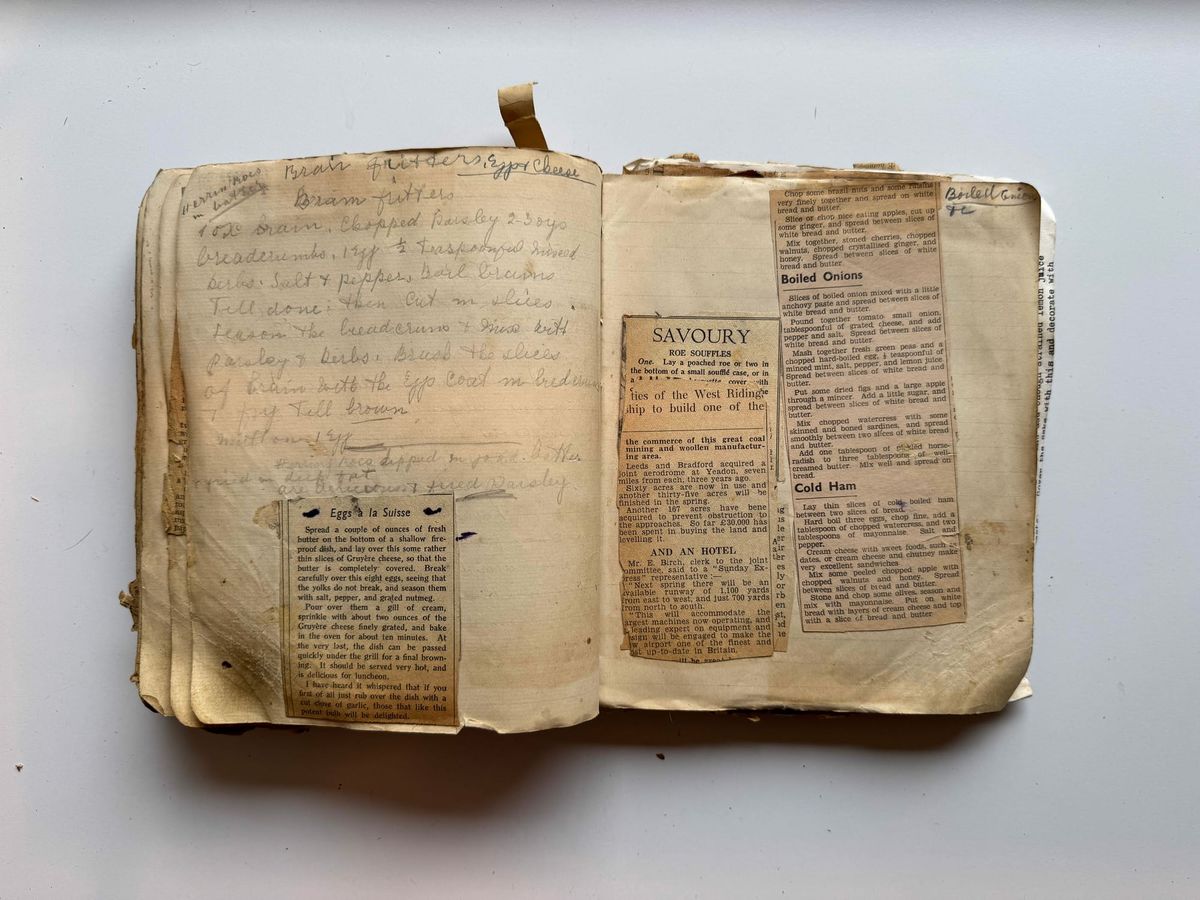 Brain fritters, Egg & Cheese
Herrin rois
in batter
Brain fritters
10z brain, Chopped Parsley 2-3 oys
breadcrumbs, 1 Egg ½ teaspoonful mixed
herbs, Salt & pepper, Boil brains
Till done: then cut in slices
the breadcrums & mix with
Parsley & herbs, Brush the slices
of brain with the Egg Coat in
& fry till brown
1 Egg
Herrin rois dipped in batter
are Delicious & fried Parsley
Eggs à la Suisse
Spread a couple of ounces of fresh
butter on the bottom of a shallow fire-
proof dish, and lay over this some rather
thin slices of Gruyère cheese, so that the
butter is completely covered. Break
carefully over this eight eggs, seeing that
the yolks do not break, and season them
with salt, pepper, and grated nutmeg.
Pour over them a gill of cream,
sprinkle with about two ounces of the
Gruyère cheese finely grated, and bake
in the oven for about ten minutes. At
the very last, the dish can be passed
quickly under the grill for a final brown-
ing. It should be served very hot, and
is delicious for luncheon.
I have heard it whispered that if you
first of all just rub over the dish with a
cut clove of garlic, those that like this
potent bulb will be delighted.
SAVOURY
ROE SOUFFLES
One. Lay a poached roe or two in
the bottom of a small soufflé case, or in
cover with
ties of the West Riding
ship to build one of the
the commerce of this great coal
mining and woollen manufactur-
ing area.
Leeds and Bradford acquired a
joint aerodrome at Yeadon, seven
miles from each, three years ago.
Sixty acres are now in use and
another thirty-five acres will be
finished in the spring.
Another 167 acres have bene
acquired to prevent obstruction to
the approaches. So far £30,000 has
been spent in buying the land and
levelling it.
AND AN HOTEL
Mr. E. Birch, clerk to the joint
committee, said to a "Sunday Ex-
press" representative:—
"Next spring there will be an
available runway of 1,100 yards
from east to west, and just 700 yards
from north to south.
"This will accommodate the
largest machines now operating, and
leading expert on equipment and
sign will be engaged to make the
w airport one of the finest and
st up-to-date in Britain.
Chop some brazil nuts and some raisins
very finely together and spread on white
bread and butter.
Slice or chop nice eating apples, cut up
some ginger, and spread between slices of
white bread and butter.
Mix together, stoned cherries, chopped
walnuts, chopped crystallised ginger, and
honey. Spread between slices of white
bread and butter.
Boiled Onions
Slices of boiled onion mixed with a little
anchovy paste and spread between slices of
white bread and butter.
Pound together tomato, small onion,
tablespoonful of grated cheese, and add
pepper and salt. Spread between slices of
white bread and butter.
Mash together fresh green peas and a
chopped hard-boiled egg, ½ teaspoonful of
minced mint, salt, pepper, and lemon juice.
Spread between slices of white bread and
butter.
Put some dried figs and a large apple
through a mincer. Add a little sugar, and
spread between slices of white bread and
butter.
Mix chopped watercress with some
skinned and boned sardines, and spread
smoothly between two slices of white bread
and butter.
Add one tablespoon of pickled horse-
radish to three tablespoons of well-
creamed butter. Mix well and spread on
bread.
Cold Ham
Lay thin slices of cold boiled ham
between two slices of bread.
Hard boil three eggs, chop fine, add a
tablespoon of chopped watercress, and two
tablespoons of mayonnaise. Salt and
pepper.
Cream cheese with sweet foods, such as
dates, or cream cheese and chutney make
very excellent sandwiches
Mix some peeled chopped apple with
chopped walnuts and honey. Spread
between slices of bread and butter.
Stone and chop some olives, season and
mix with mayonnaise. Put on white
bread with layers of cream cheese and top
with a slice of bread and butter.
Boiled Onion
&c
enough strained lemon juice
Cover the cake with this and decorate with